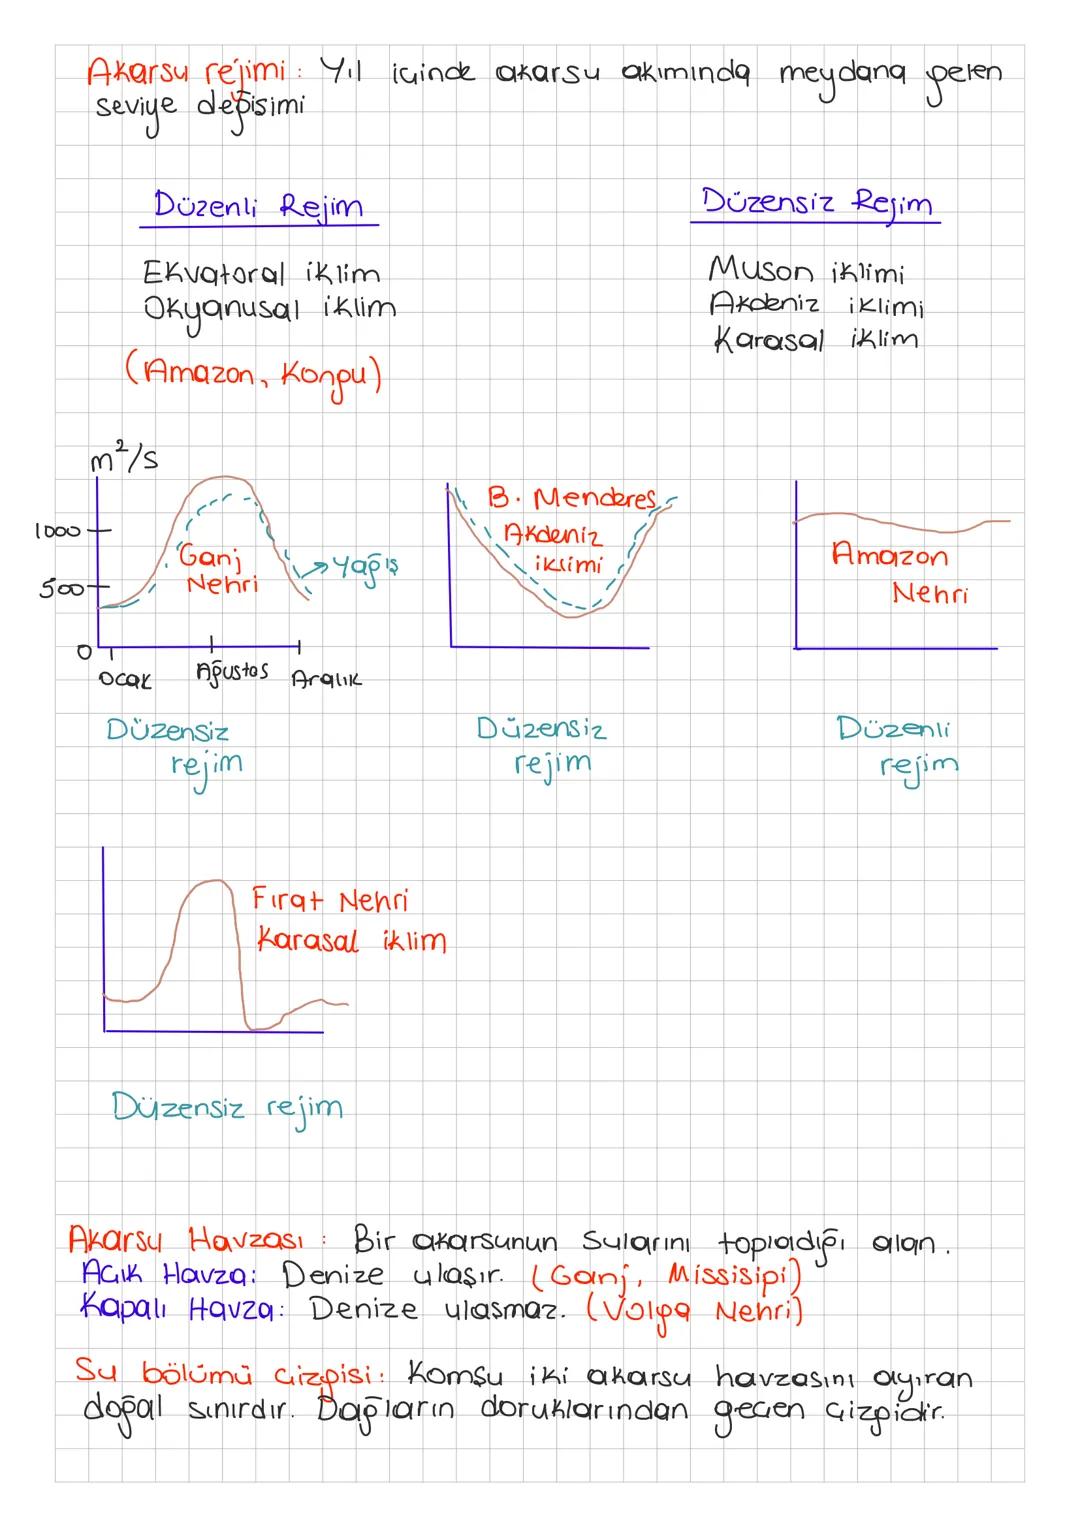 Akarsu rejimi : Yıl içinde akarsu akımında meydana gelen
seviye değişimi
Düzenli Rejim
Düzensiz Rejim
Ekvatoral iklim
Okyanusal iklim
(Amazon, Kongu)
Muson iklimi
Akdeniz iklimi
Karasal iklim
m²/s
1000
500
0
Ganj
Nehri
Yağış
Ocak
Ağustos
Aralık
Düzensiz
rejim
B. Menderes
Akdeniz
iklimi
Düzensiz
rejim
Amazon
Nehri
Düzenli
rejim
Fırat Nehri
Karasal iklim
Düzensiz rejim
Akarsu Havzası : Bir akarsunun sularını topladığı alan.
Açık Havza: Denize ulaşır. (Ganj, Missisipi)
Kapalı Havza: Denize ulaşmaz. (Volga Nehri)
Su bölümü çizgisi: Komşu iki akarsu havzasını ayıran
doğal sınırdır. Dağların doruklarından geçen çizgidir.